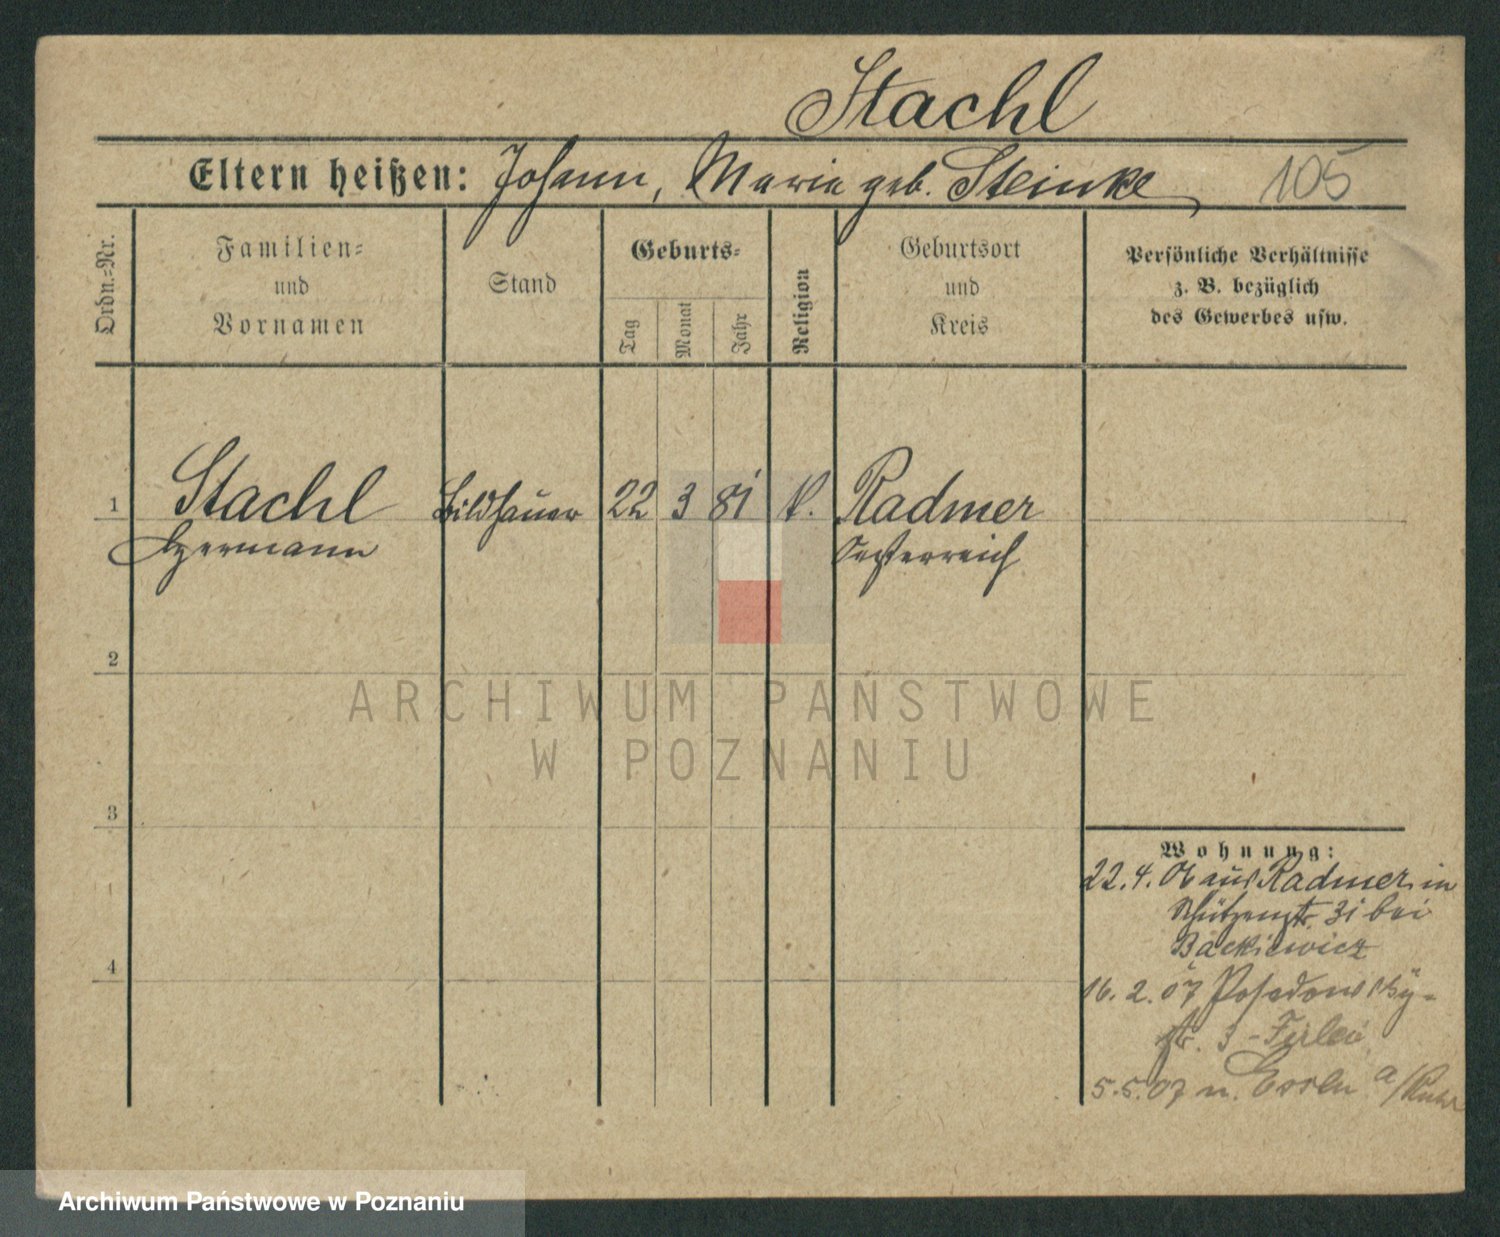 Stachl
Eltern heißen: Johann, Marie geb. Steinke 105
Ordn.=Nr.
Familien=
und
Vornamen
Stand
Geburts=
Tag
Monat
Jahr
Religion
Geburtsort
und
Kreis
Persönliche Verhältnisse
z. B. bezüglich
des Gewerbes usw.
1 Stachl Bildhauer 22 3 81 k. Radmer
Hermann Oesterreich
2
3
4
Wohnung:
22. 4. 06 aus Radmer in
Schützenstr. 31 bei
Backiewicz
16. 2. 07 Posadowsky=
str. 3 -
5. 5. 07 n. Essen a/Ruhr
ARCHIWUM PAŃSTWOWE
W POZNANIU
Archiwum Państwowe w Poznaniu